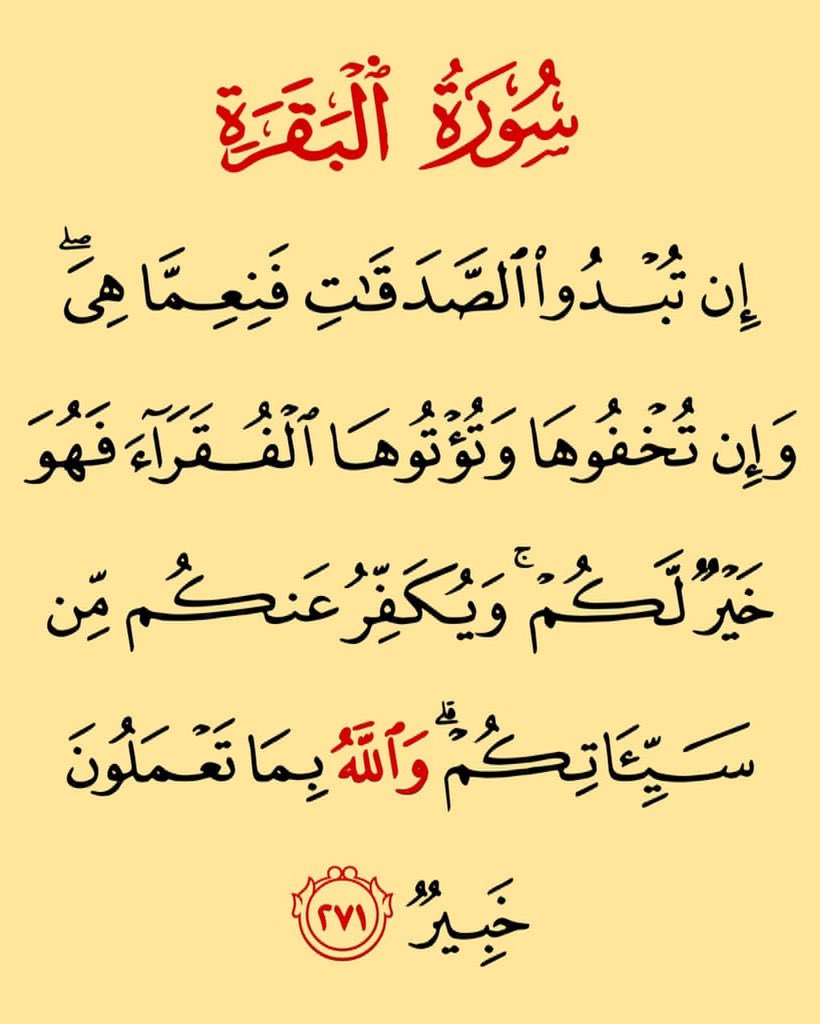 سُورَةُ ٱلْبَقَرَةِ
إِن تُبْدُوا۟ ٱلصَّدَقَٰتِ فَنِعِمَّا هِىَ ۖ
وَإِن تُخْفُوهَا وَتُؤْتُوهَا ٱلْفُقَرَآءَ فَهُوَ
خَيْرٌ لَّكُمْ ۚ وَيُكَفِّرُ عَنكُم مِّن
سَيِّـَٔاتِكُمْ ۗ وَٱللَّهُ بِمَا تَعْمَلُونَ
خَبِيرٌ ٢٧١